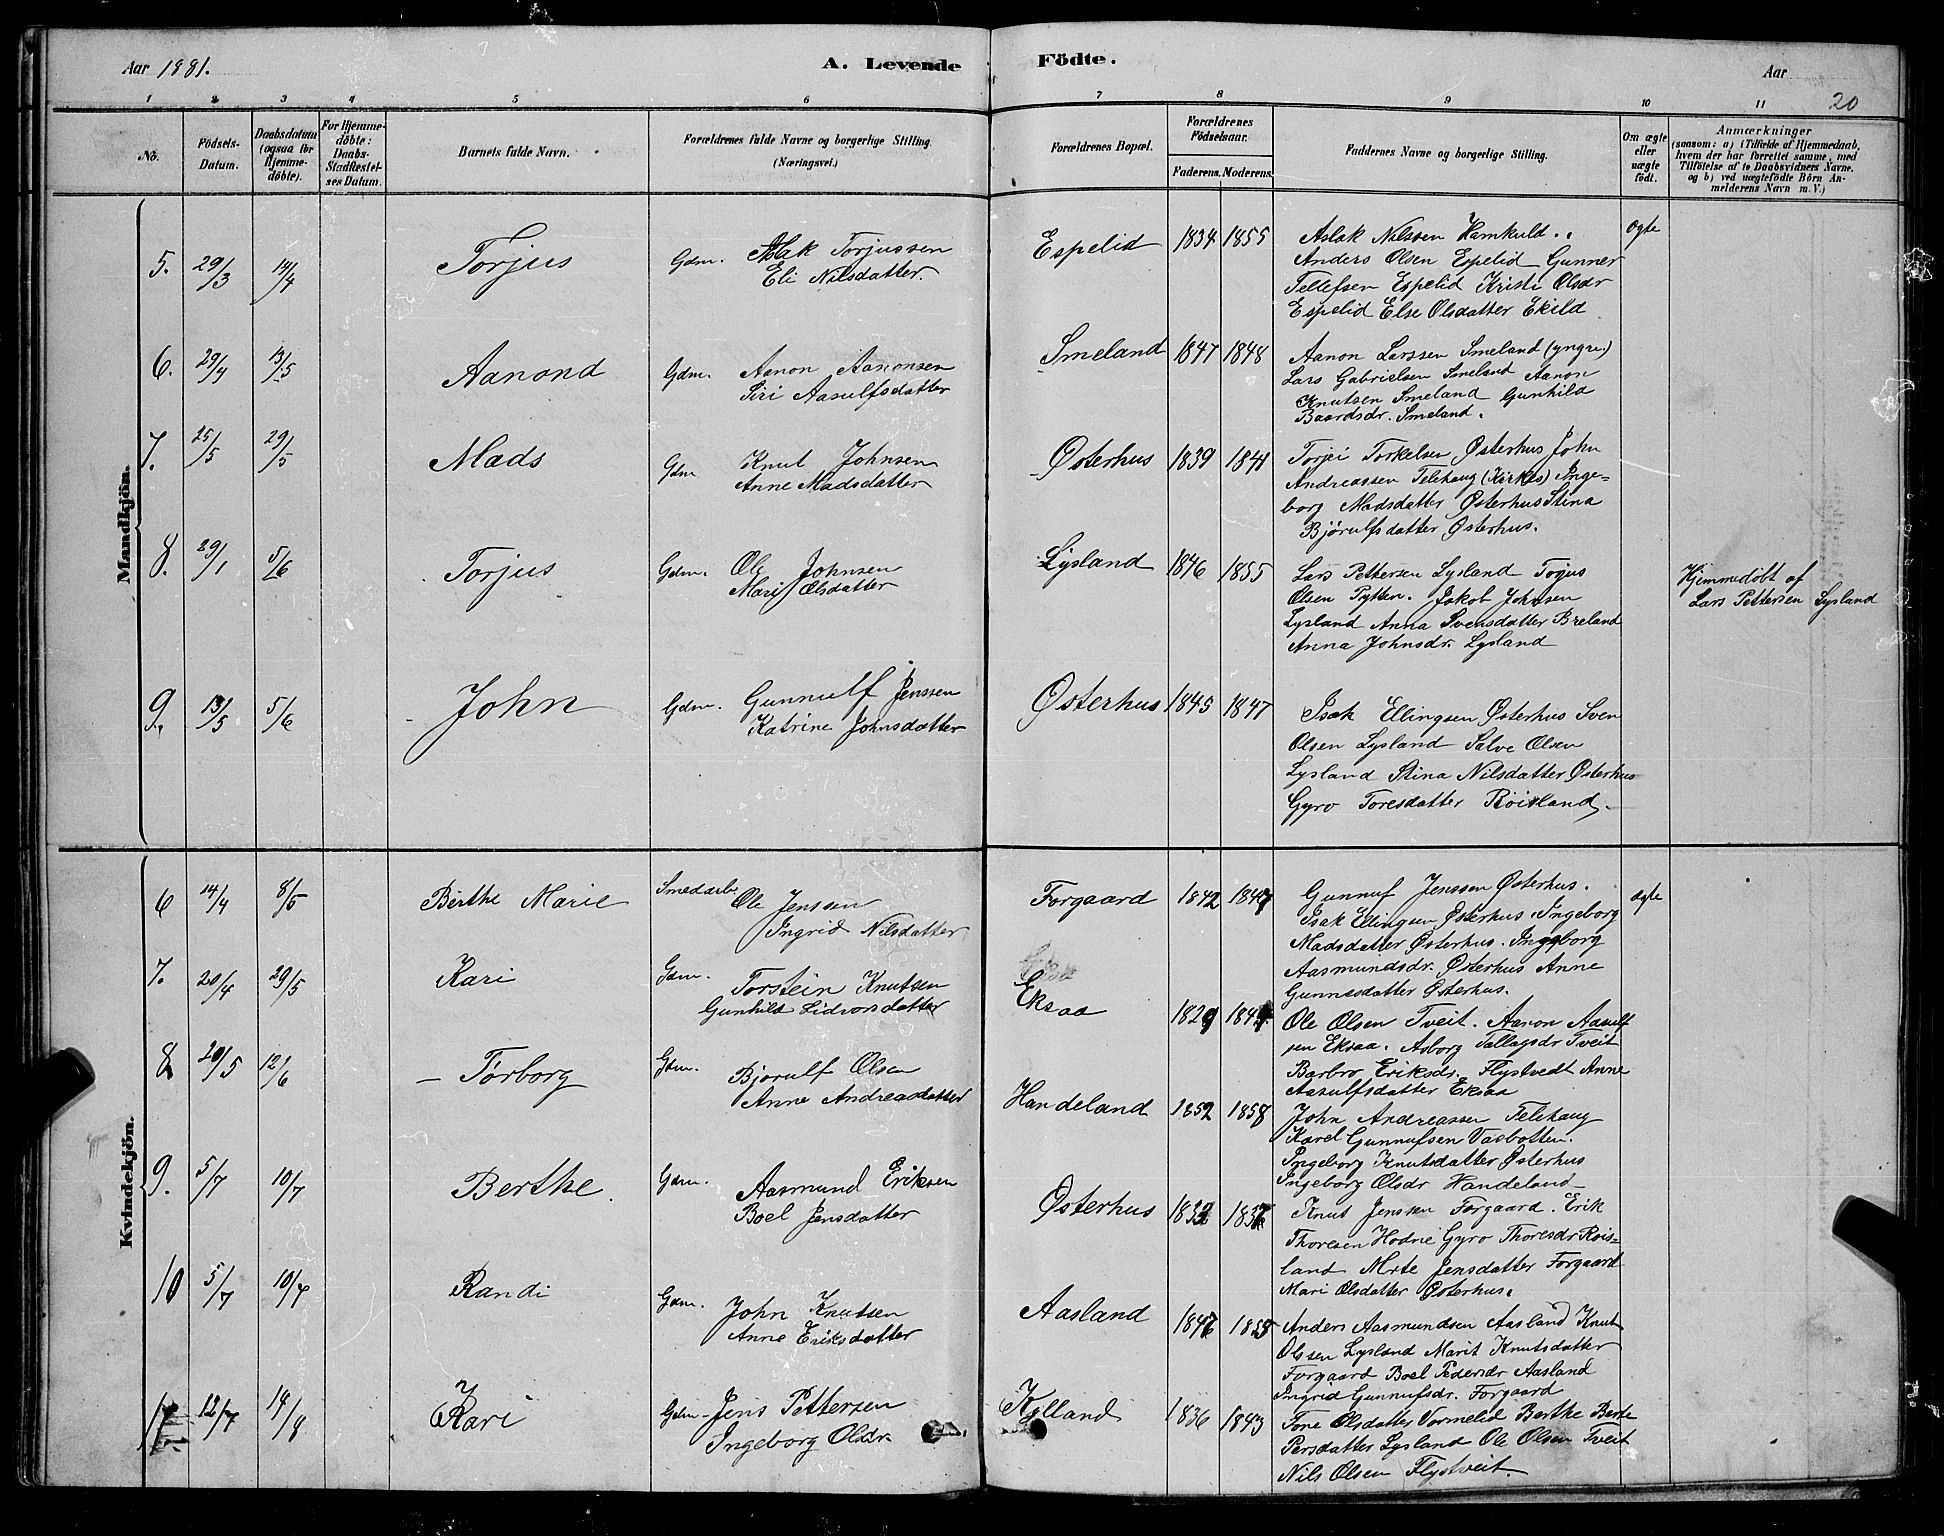 Aar 1881.
A. Levende Födte.
Aar
20
1 2 3 4 5 6 7 8 9 10 11
No.
Födsels-Datum.
Daabsdatum (ogsaa for Hjemme-döbte).
For Hjemme-döbte: Daabs-Stadfæstel-ses Datum.
Barnets fulde Navn.
Forældrenes fulde Navne og borgerlige Stilling. (Næringsvei.)
Forældrenes Bopæl.
Forældrenes Födselsaar.
Faderens. Moderens.
Faddernes Navne og borgerlige Stilling.
Om ægte eller uægte födt.
Anmærkninger
(saasom: a) i Tilfælde af Hjemmedaab, hvem der har forrettet samme, med Tilföielse af to Daabsvidners Navne. og b) ved uægtefödte Börn An-melderens Navn m. V.)
Mandkjön.
5. 29/3 14/4 Torjus Gdm. Aslak Torjussen
Eli Nilsdatter.
Espelid 1834 1855
Aslak Nilsson Hamkuld..
Anders Olsen Espelid Gunner
Tellefsen Espelid Kristi Olsdr
Espelid Else Olsdatter Ekild
ægte
6. 29/4 13/5 Aanond Gdm. Aanon Aanonsen
Siri Aasulfsdatter
Smeland 1847 1848
Aanon Larssen Smeland (yngre.)
Lars Gabrielsen Smeland Aanon
Knutsen Smeland Gunhild
Baardsdr. Smeland.
7. 25/5 29/5 Mads Gdm Knut Johnsen
Anne Madsdatter
Østerhus 1839 1841
Torjei Torkelsen Østerhus John
Andreassen Telehaug (Kirkes) Inge=
borg Madsdatter Østerhus Stina
Bjørulfsdatter Østerhus.
8. 29/1 5/6 Torjus Gdm. Ole Johnsen
Mari Olsdatter
Lysland 1846 1855
Lars Pettersen Lysland Tojus
Olsen Pytten. Jakob Johnsen
Lysland Anna Svensdatter Breland
Anna Johnsdr. Lysland
Hjemmedöbt af
Lars Pettersen Lysland
9. 13/5 5/6 John Gdm. Gunnulf Jenssen
Katrine Johnsdatter
Østerhus 1845 1847
Isak Ellingsen Østerhus Sven
Olsen Lysland Salve Olsen
Lysland Stina Nilsdatter Østerhus
Gyro Toresdatter Röisland.
Kvindekjön.
6 14/4 8/5 Birthe Marie Smedarb. Ole Jenssen
Ingrid Nilsdatter
Forgaard 1842
Gunnuf Jenssen Østerhus.
Isak Ellingsen Østerhus. Ingeborg
Madsdatter Østerhus. Ingeborg
Aasmundsdr. Østerhus Anne
Gunnesdatter Østerhus.
ægte
7. 20/4 29/5 Kari Gdm. Torstein Knutsen
Gunhild Lidvorsdatter
Eksaa 1829
Ole Olsen Tveit. Aanon Aasulf
sen Eksaa. Asborg Tallagsdr Tveit
Barbro Eriksdr. Flystvedt Anne
Aasulfsdatter Eksaa
8 20/5 12/6 Torborg Gdm. Bjorulf Olsen
Anne Andreasdatter
Handeland 1852 1858
John Andreassen Telehaug
Karel Gunnufsen Vasbotten.
Ingeborg Knutsdatter Østerhus
Ingeborg Olsdr Handeland
9. 5/7 10/7 Berthe. Gdm. Aasmund Eriksen
Boel Jensdatter
Østerhus
Knut Jenssen Forgaard. Erik
Thoresen Hodne Gyro Thoresdr Röis-
land Mrte Jensdatter Forgaard
Mari Olsdatter Østerhus.
10 5/7 10/7 Randi Gdm. John Knutsen
Anne Eriksdatter
Aasland
Anders Aasmundsen Aasland Knut
Olsen Lysland Marit Knutsdatter
Forgaard Boel Pedersdr Aasland
Ingrid Gunnufsdr. Forgaard
12/7 14/8 Kari Gdm- Jens Pettersen
Ingeborg Olsdr.
Kylland 1836 1843
Tone Olsdatter Vormelid Berthe Berte
Persdatter Lysland Ole Olsen Tveit
Nils Olsen Flystveit.